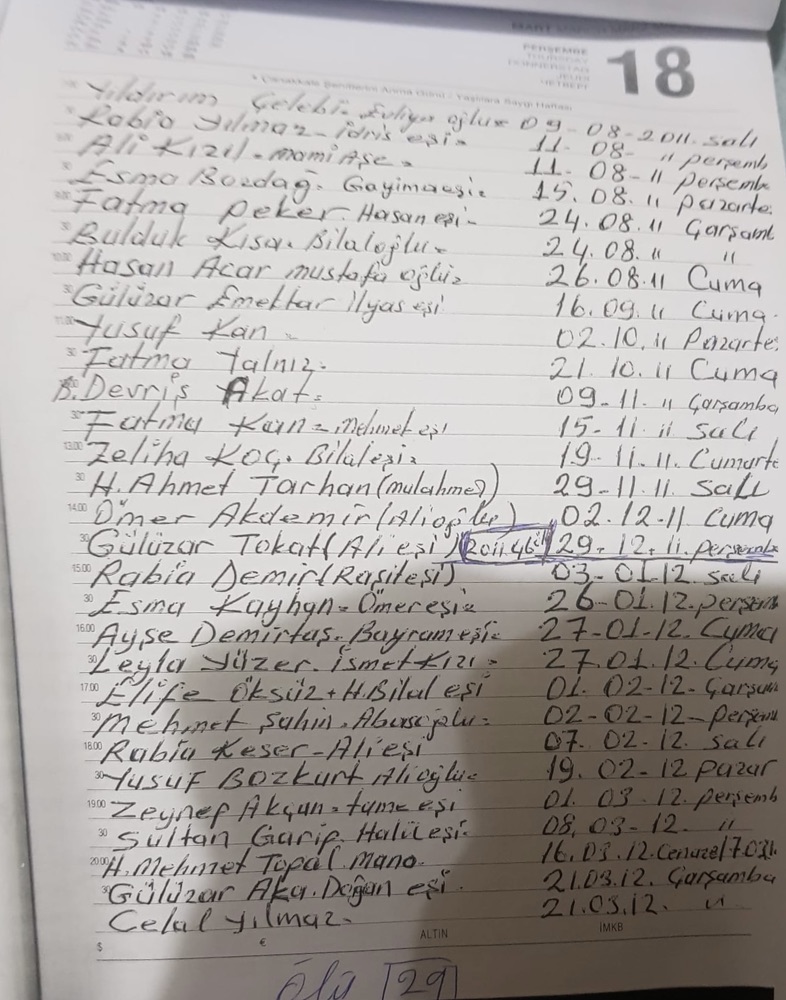 MART
PERŞEMBE
THURSDAY
DONNERSTAG
JEUDI
18
Yıldırım Çelebi - Evliya oğlu = 09-08-2011. salı
Rabia Yılmaz - idris eşi = 11. 08- " perşemb
Ali Kızıl = mami Aşe = 11. 08-11 perşembe
Esma Bozdağ. Gayimaeşi = 15. 08. 11 pazarte.
Fatma Peker. Hasan eşi - 24.08.11 Çarşamb
Bulduk Kısa. Bilaloğlu = 24.08. " "
10.00 Hasan Acar mustafa oğlu = 26.08.11 Cuma
30 Gülüzar Emektar ilyas eşi 16.09.11 Cuma.
11.00 Yusuf Kan = 02.10.11 Pazarte.
30 Fatma Yalnız. 21.10.11 Cuma
B. Devriş Akat = 09-11-11 Çarşamba
30 Fatma Kan = Mehmet eşi 15-11-11 Salı
13.00 Zeliha Koç. Bilaleşi = 19-11-11. Cumarte
30 H. Ahmet Tarhan (mulahmed) 29-11.11. Salı
14.00 Ömer Akdemir (Alioğlu) 02.12-11 Cuma
30 Gülüzar Tokat (Ali eşi) 29-12-11. perşembe
15.00 Rabia Demir (Raşiteşi) 03-01.12. salı
30 Esma Kayhan = Ömereşi = 26-01.12. perşemb
16.00 Ayşe Demirtaş. Bayrameşi = 27-01-12. Cuma
30 Leyla Yüzer. ismet Kızı = 27.01.12. Cuma
17.00 Elife Öksüz + H. Bilal eşi 01. 02-12- Çarşam
30 Mehmet Şahin. 02-02-12- perşemb
18.00 Rabia Keser - Alieşi 07. 02-12. salı
30 Yusuf Bozkurt Alioğlu = 19. 02-12 pazar
19.00 Zeynep Akçan = eşi 01. 03-12. perşemb
30 Sultan Garip Halileşi. 08. 03-12. "
20.00 H. Mehmet Topal Mano. 16.03.12. Cenaze
30 Gülüzar Aka. Doğan eşi. 21.03.12. Çarşamba
Celal Yılmaz. 21.03.12. "
$ € ALTIN İMKB
Ölü 29